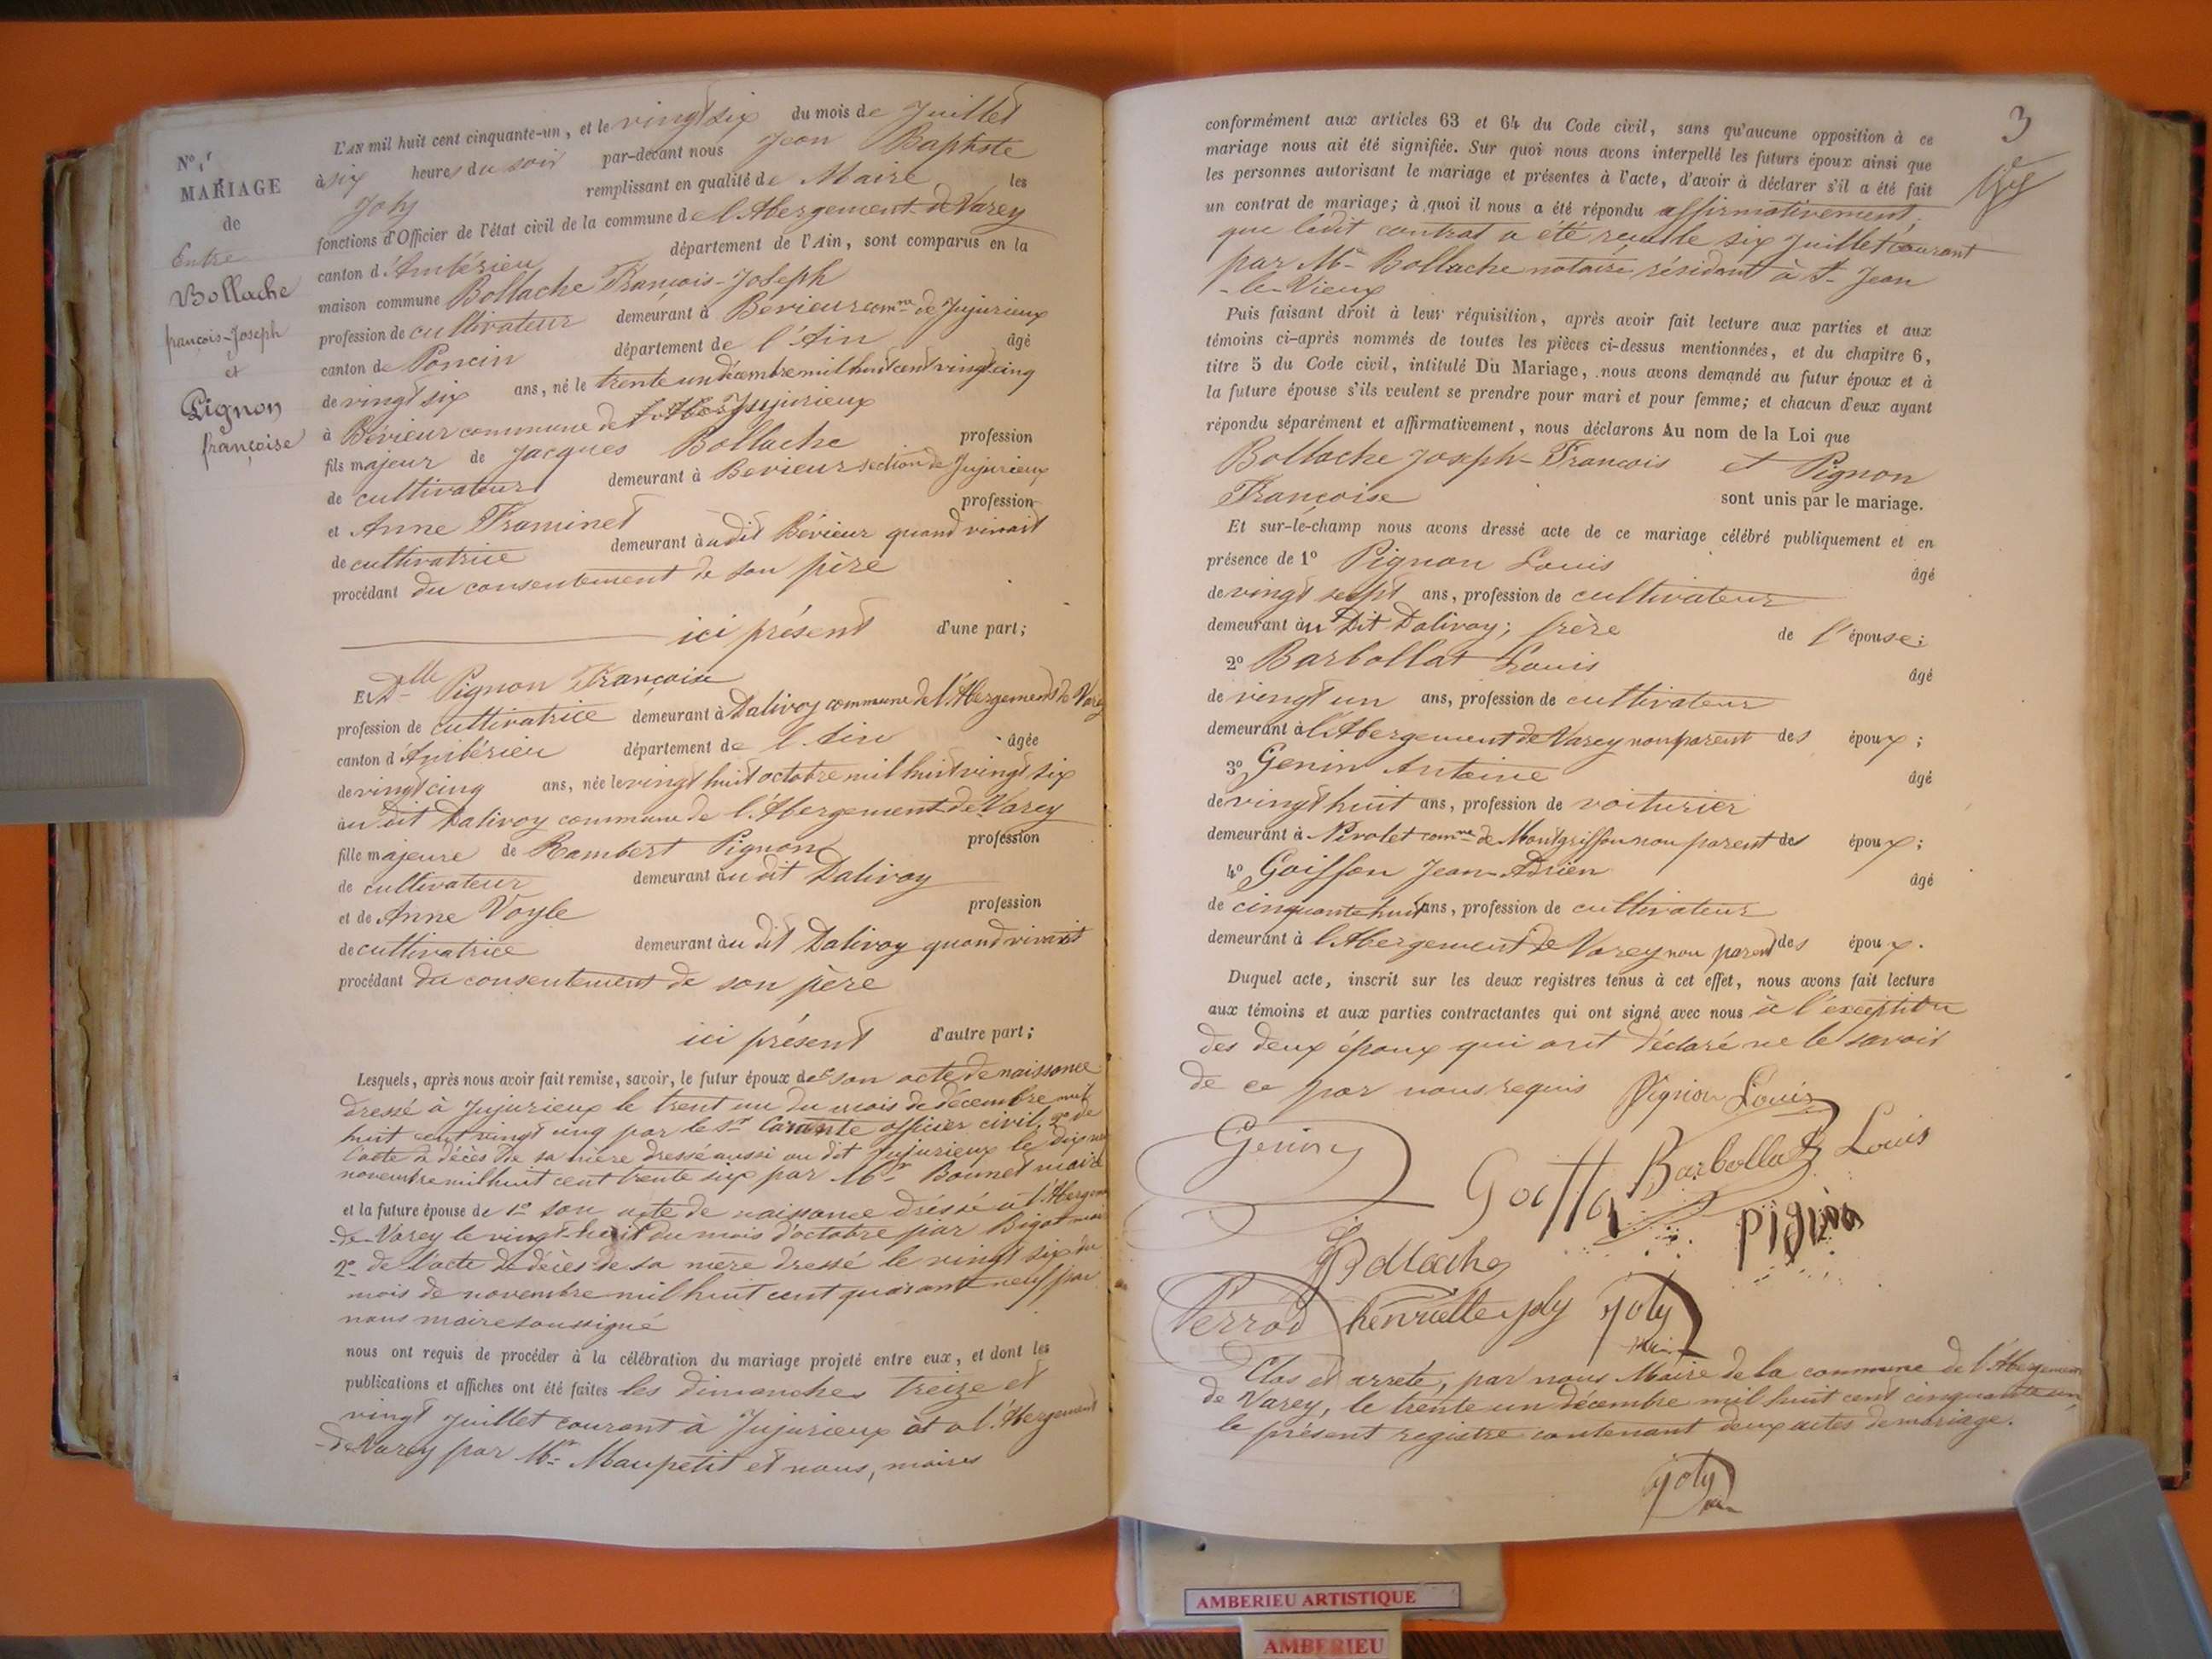 MARIAGE
de
Entre
Bollache
françois-Joseph
et
Pignon
françoise
L'AN mil huit cent cinquante-un, et le vingt six du mois de Juillet
à six heures du soir par-devant nous Jean Baptiste
Joly remplissant en qualité de Maire les
fonctions d'Officier de l'état civil de la commune de l'Abergement-de-Varey
canton d'Ambérieu département de l'Ain, sont comparus en la
maison commune Bollache François-Joseph
profession de cultivateur demeurant à Bevieur comne de Jujurieux
canton de Poncin département de l'Ain âgé
de vingt six ans, né le trente un décembre mil huit cent vingt cinq
à Bévieur commune de Jujurieux
fils majeur de Jacques Bollache profession
de cultivateur demeurant à Bevieur section de Jujurieux
et Anne Framinet profession
de cultivatrice demeurant audit Bévieur quand vivait
procédant du consentement de son père
ici présent d'une part;
Et Dlle Pignon Françoise
profession de cultivatrice demeurant à Dalivoy commune de l'Abergement de Varey
canton d'Ambérieu département de l'Ain âgée
de vingt cinq ans, née le vingt huit octobre mil huit vingt six
au dit Dalivoy commune de l'Abergement-de-Varey
fille majeure de Rambert Pignon profession
de cultivateur demeurant au dit Dalivoy
et de Anne Voyle profession
de cultivatrice demeurant au dit Dalivoy quand vivait
procédant du consentement de son père
ici présent d'autre part;
Lesquels, après nous avoir fait remise, savoir, le futur époux de son acte de naissance
dressé à Jujurieux le trent un du mois de décembre mil
huit cent vingt cinq par le Sr officier civil, 2o de
l'acte de décès de sa mère dressé aussi au dit Jujurieux le dix
novembre mil huit cent trente six par Mr Bonnet maire
et la future épouse de 1o son acte de naissance dressé à l'Abergemt
-de-Varey le vingt-huit du mois d'octobre par Bigot
2o de l'acte de décès de sa mère dressé le vingt six du
mois de novembre mil huit cent quarante neuf par
nous maire soussigné
nous ont requis de procéder à la célébration du mariage projeté entre eux, et dont les
publications et affiches ont été faites les dimanches treize et
vingt Juillet courant à Jujurieux et a l'Abergement
-de-Varey par Mr Maupetit et nous, maires
3
conformément aux articles 63 et 64 du Code civil, sans qu'aucune opposition à ce
mariage nous ait été signifiée. Sur quoi nous avons interpellé les futurs époux ainsi que
les personnes autorisant le mariage et présentes à l'acte, d'avoir à déclarer s'il a été fait
un contrat de mariage; à quoi il nous a été répondu affirmativement.
que ledit contrat a été reçu le six Juillet courant
par Me Bollache notaire résidant à St Jean
-le-Vieux
Puis faisant droit à leur réquisition, après avoir fait lecture aux parties et aux
témoins ci-après nommés de toutes les pièces ci-dessus mentionnées, et du chapitre 6,
titre 5 du Code civil, intitulé Du Mariage, nous avons demandé au futur époux et à
la future épouse s'ils veulent se prendre pour mari et pour femme; et chacun d'eux ayant
répondu séparément et affirmativement, nous déclarons Au nom de la Loi que
Bollache Joseph-François et Pignon
Françoise sont unis par le mariage.
Et sur-le-champ nous avons dressé acte de ce mariage célébré publiquement et en
présence de 1o Pignon Louis âgé
de vingt sept ans, profession de cultivateur
demeurant au dit Dalivoy; frère de l'épouse;
2o Barbollat Louis âgé
de vingt un ans, profession de cultivateur
demeurant à l'Abergement de Varey non parent des époux;
3o Genin Antoine âgé
de vingt huit ans, profession de voiturier
demeurant à Nivolet comne de Montgriffon non parent des époux;
4o Goiffon Jean-Adrien âgé
de cinquante huit ans, profession de cultivateur
demeurant à l'Abergement de Varey non parent des époux.
Duquel acte, inscrit sur les deux registres tenus à cet effet, nous avons fait lecture
aux témoins et aux parties contractantes qui ont signé avec nous à l'exception
des deux époux qui ont déclaré ne le savoir
de ce par nous requis Pignon Louis
Genin
Barbollat Louis
Pignon
Bollache
Perrod henriette joly Joly
Clos et arreté, par nous Maire de la commune de l'Abergement
de Varey, le trente un décembre mil huit cent cinquante un,
le présent registre contenant deux actes de mariage.
Joly
AMBERIEU ARTISTIQUE
AMBERIEU